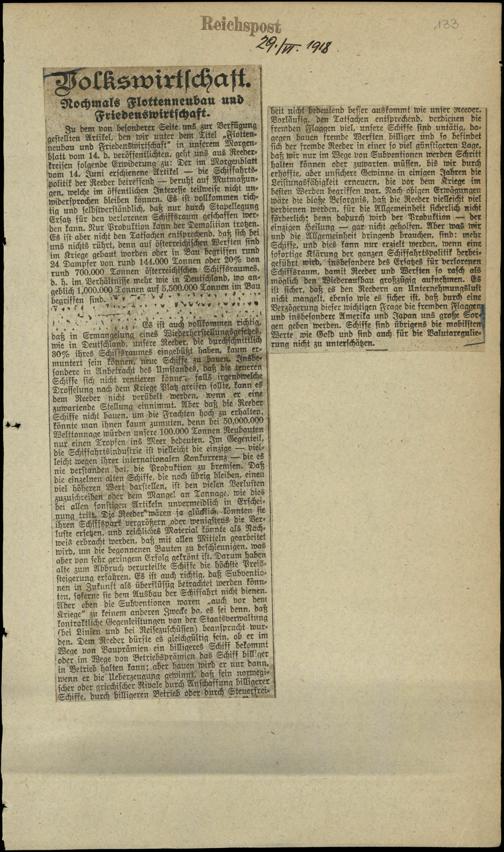 Reichspost
29./VI. 1918
133
Volkswirtschaft.
Nochmals Flottenneubau und
Friedenswirtschaft.
Zu dem von besonderer Seite uns zur Verfügung
gestellten Artikel, den wir unter dem Titel „Flotten-
neubau und Friedenswirtschaft" in unserem Morgen-
blatt vom 14. d. veröffentlichten, geht uns aus Reeder-
kreisen folgende Erwiderung zu: Der im Morgenblatt
vom 14. Juni erschienene Artikel — die Schiffahrts-
politik der Reeder betreffend — beruht auf Mutmaßun-
gen, welche im öffentlichen Interesse teilweise nicht un-
widersprochen bleiben können. Es ist vollkommen rich-
tig und selbstverständlich, daß nur durch Stapellegung
Ersatz für den verlorenen Schiffsraum geschaffen wer-
den kann. Nur Produktion kann der Demolition trotzen.
Es ist aber nicht den Tatsachen entsprechend, daß sich bei
uns nichts rührt, denn auf österreichischen Werften sind
im Kriege gebaut worden oder im Bau begriffen rund
24 Dampfer von rund 144.000 Tonnen oder 20% von
rund 700.000 Tonnen österreichischen Schiffsraumes,
d. h. im Verhältnis mehr wie in Deutschland, wo an-
geblich 1,000.000 Tonnen auf 5,500.000 Tonnen im Bau
begriffen sind.
Es ist auch vollkommen richtig,
daß in Ermangelung eines Wiederherstellungsgesetzes,
wie in Deutschland, unsere Reeder, die durchschnittlich
30% ihres Schiffsraumes eingebüßt haben, kaum er-
muntert sein können, neue Schiffe zu bauen. Insbe-
sondere in Anbetracht des Umstandes, daß die teueren
Schiffe sich nicht rentieren können, falls irgendwelche
Drosselung nach dem Kriege Platz greifen sollte, kann es
dem Reeder nicht verübelt werden, wenn er eine
zuwartende Stellung einnimmt. Aber daß die Reeder
Schiffe nicht bauen, um die Frachten hoch zu erhalten,
könnte man ihnen kaum zumuten, denn bei 50,000.000
Welttonnage würden unsere 100.000 Tonnen Neubauten
nur einen Tropfen ins Meer bedeuten. Im Gegenteil,
die Schiffahrtsindustrie ist vielleicht die einzige — viel-
leicht wegen ihrer internationalen Konkurrenz — die es
nie verstanden hat, die Produktion zu bremsen. Daß
die einzelnen alten Schiffe, die noch übrig bleiben, einen
viel höheren Wert darstellen, ist den vielen Verlusten
zuzuschreiben oder dem Mangel an Tonnage, wie dies
bei allen sonstigen Artikeln unvermeidlich in Erschei-
nung tritt. Die Reeder wären ja glücklich, könnten sie
ihren Schiffspark vergrößern oder wenigstens die Ver-
luste ersetzen, und reichliches Material könnte als Nach-
weis erbracht werden, daß mit allen Mitteln gearbeitet
wird, um die begonnenen Bauten zu beschleunigen, was
aber von sehr geringem Erfolg gekrönt ist. Darum haben
alte zum Abbruch verurteilte Schiffe die höchste Preis-
steigerung erfahren. Es ist auch richtig, daß Subventio-
nen in Zukunft als überflüssig betrachtet werden könn-
ten, soferne sie dem Ausbau der Schiffahrt nicht dienen.
Aber eben die Subventionen waren „auch vor dem
Kriege" zu keinem anderen Zwecke da, es sei denn, daß
kontraktliche Gegenleistungen von der Staatsverwaltung
(bei Linien und bei Reisezuschüssen) beansprucht wur-
den. Dem Reeder dürfte es gleichgültig sein, ob er im
Wege von Bauprämien ein billigeres Schiff bekommt
oder im Wege von Betriebsprämien das Schiff billiger
in Betrieb halten kann; aber bauen wird er nur dann,
wenn er die Ueberzeugung gewinnt, daß sein norwegi-
scher oder griechischer Rivale durch Anschaffung billigerer
Schiffe, durch billigeren Betrieb oder durch Steuerfrei-
heit nicht bedeutend besser auskommt wie unser Reeder.
Vorläufig, den Tatsachen entsprechend, verdienen die
fremden Flaggen viel, unsere Schiffe sind untätig, da-
gegen bauen fremde Werften billiger und so befindet
sich der fremde Reeder in einer so viel günstigeren Lage,
daß wir nur im Wege von Subventionen werden Schritt
halten können oder zuwarten müssen, bis wir durch
erhoffte, aber unsichere Gewinne in einigen Jahren die
Leistungsfähigkeit erneuern, die vor dem Kriege im
besten Werden begriffen war. Nach obigen Erwägungen
wäre die bloße Besorgnis, daß die Reeder vielleicht viel
verdienen werden, für die Allgemeinheit sicherlich nicht
förderlich; denn dadurch wird der Produktion — der
einzigen Heilung — gar nicht geholfen. Aber was wir
und die Allgemeinheit dringend brauchen, sind: mehr
Schiffe, und dies kann nur erzielt werden, wenn eine
sofortige Klärung der ganzen Schiffahrtspolitik herbei-
geführt wird, insbesondere des Ersatzes für verlorenen
Schiffsraum, damit Reeder und Werften so rasch als
möglich den Wiederaufbau großzügig aufnehmen. Es
ist sicher, daß es den Reedern an Unternehmungslust
nicht mangelt, ebenso wie es sicher ist, daß durch eine
Verzögerung dieser wichtigen Frage die fremden Flaggen
und insbesondere Amerika und Japan uns große Sor-
gen geben werden. Schiffe sind übrigens die mobilsten
Werte wie Gold und sind auch für die Valutaregulie-
rung nicht zu unterschätzen.